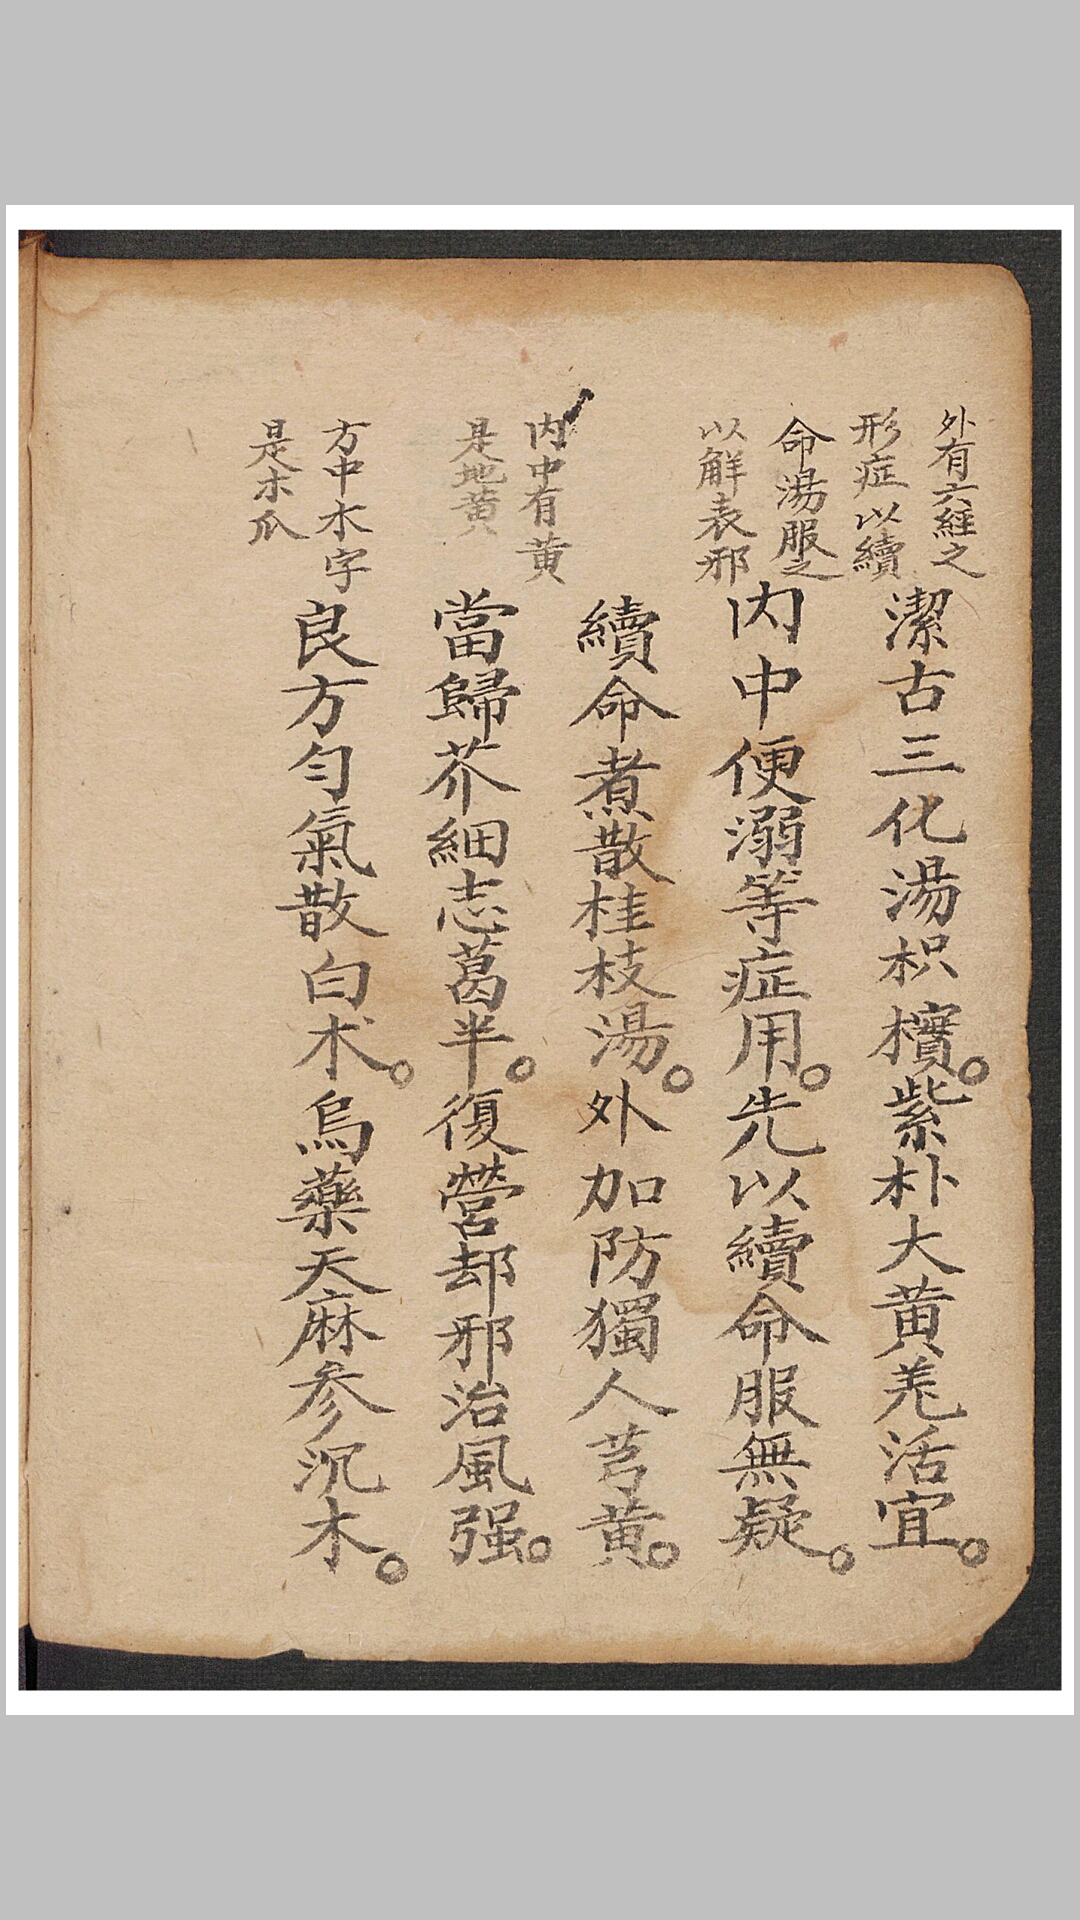 外有六經之
形症以續
命湯服之
以解表邪
潔古三化湯枳檳。紫朴大黄羗活宜。
内中便溺等症用。先以續命服無疑。
内中有黄
是地黄
續命煮散桂枝湯。外加防獨人芎黄。
當歸芥細志葛半。復營却邪治風强。
方中木字
是木瓜
良方勻氣散白术。烏藥天麻参沉木。